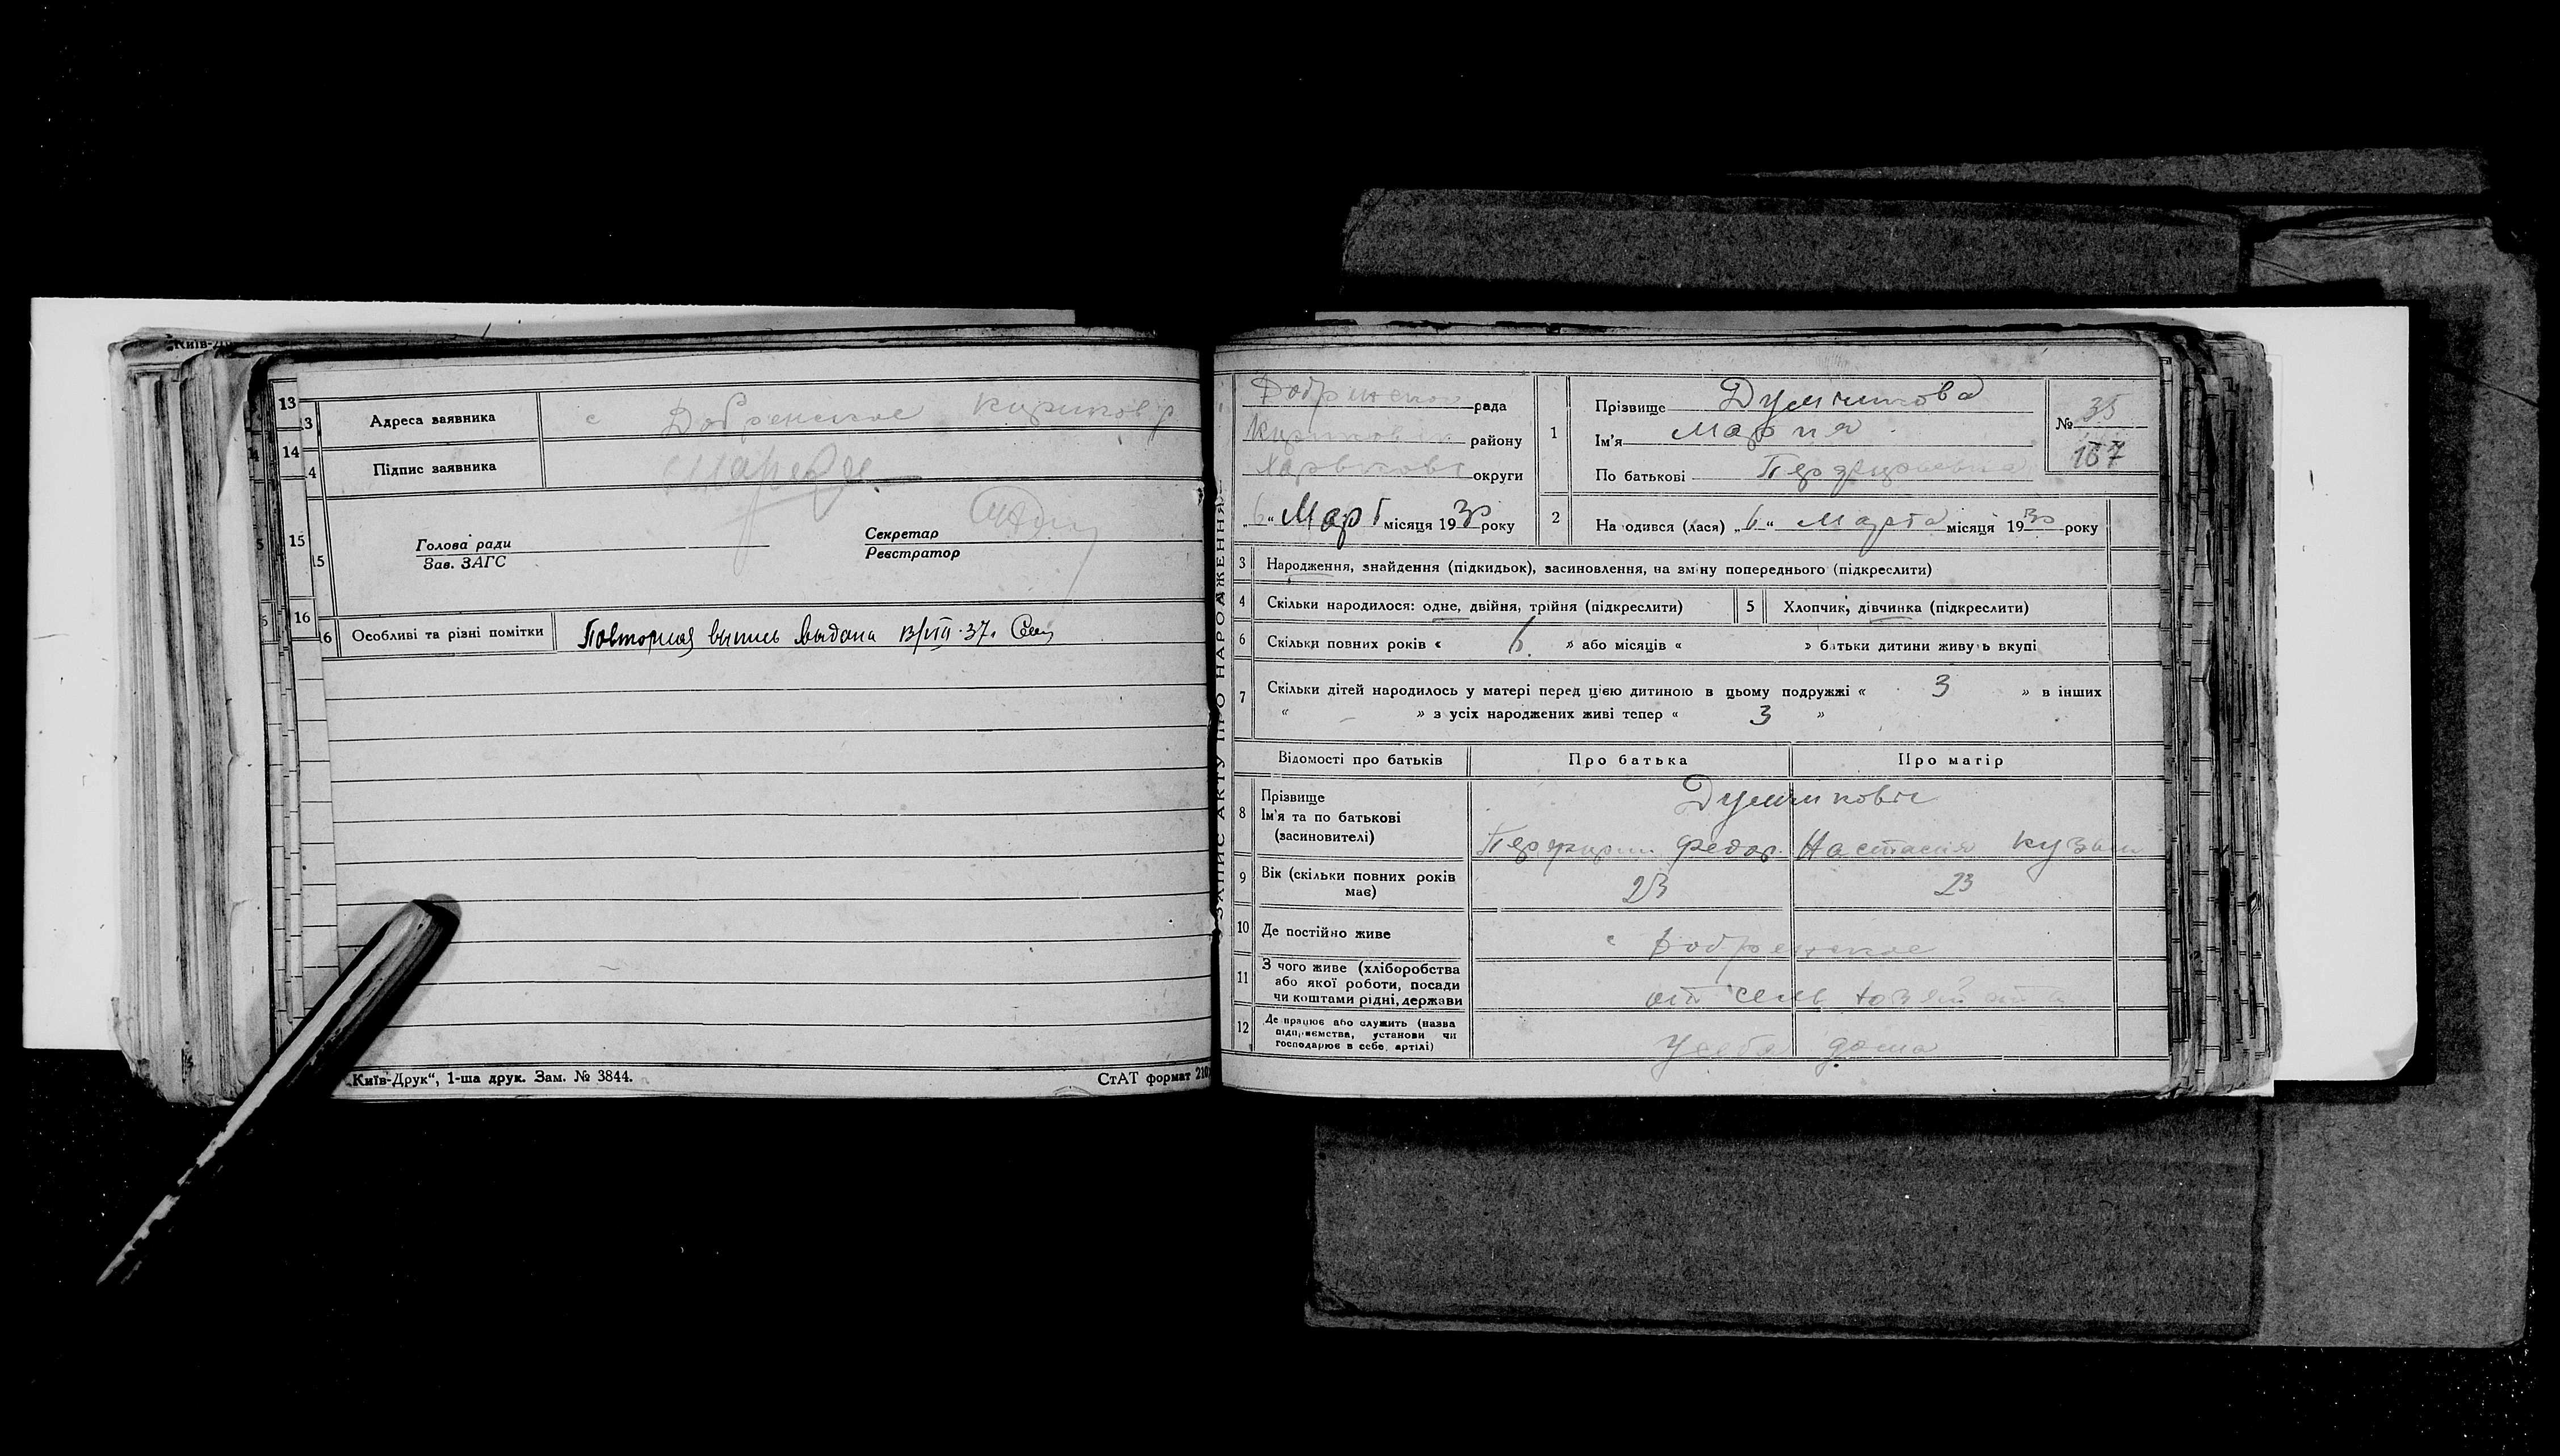 Київ-Др
13
3 Адреса заявника с Добренское
14
4 Підпис заявника
15
5 Голова ради
Зав. ЗАГС
Секретар
Реєстратор
16
6 Особливі та різні помітки Повторная выпись выдана 13/VIII-37г
„Київ-Друк“, 1-ша друк. Зам. № 3844.
СтАТ формат 210
ЗАПИС АКТУ ПРО НАРОДЖЕННЯ
Добренскої рада
району
Харьковс округи
„6“ Март місяця 1930 року
1 Прізвище
Ім'я Мария
По батькові
№ 35
167
2 На одився (лася) „6“ Марта місяця 1930 року
3 Народження, знайдення (підкидьок), засиновлення, на зміну попереднього (підкреслити)
4 Скільки народилося: одне, двійня, трійня (підкреслити) 5 Хлопчик, дівчинка (підкреслити)
6 Скільки повних років « 6 » або місяців « » батьки дитини живуть вкупі
7 Скільки дітей народилось у матері перед цією дитиною в цьому подружжі « 3 » в інших
« – » з усіх народжених живі тепер « 3 »
Відомості про батьків Про батька Про матір
8 Прізвище
Ім'я та по батькові
(засиновителі)
Федор. Настасия Кузьм
9 Вік (скільки повних років має) 23 23
10 Де постійно живе с Добренское
11 З чого живе (хліборобства
або якої роботи, посади
чи коштами рідні, держави
от сель хозяйства
12 Де працює або служить (назва
підприємства, установи чи
господарює в себе, артілі)
у себя дома